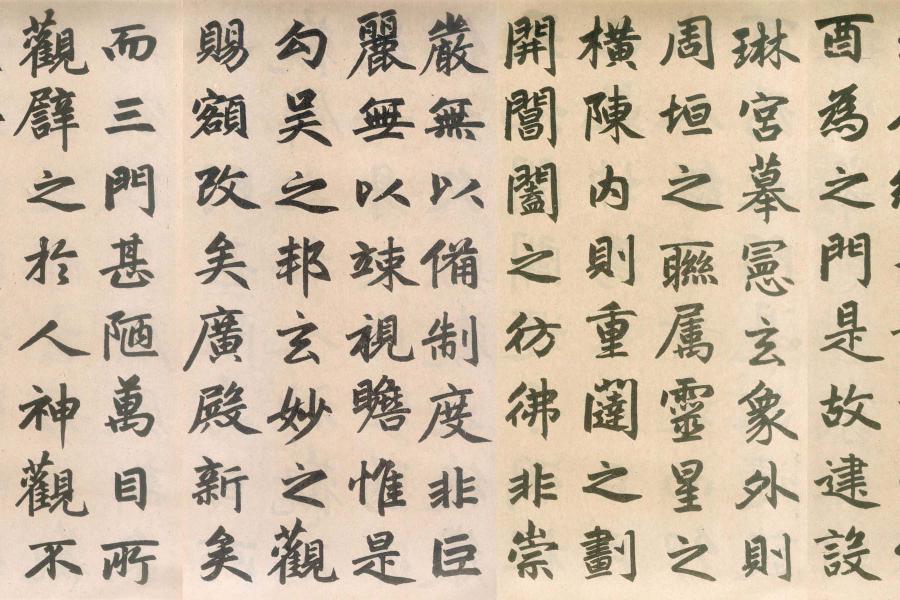 酉為之門是故建設
琳宮摹憲玄象外則
周垣之聯属靈星之
橫陳內則重闥之劃
開闔闔之彷彿非崇
嚴無以備制度非巨
麗無以竦視瞻惟是
勾吴之邦玄妙之觀
賜額改矣廣殿新矣
而三門甚陋萬目所
觀辟之於人神觀不